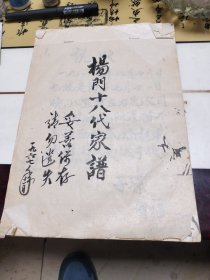 楊門十八代家譜
妥善保存
請勿遺失
一九六七年